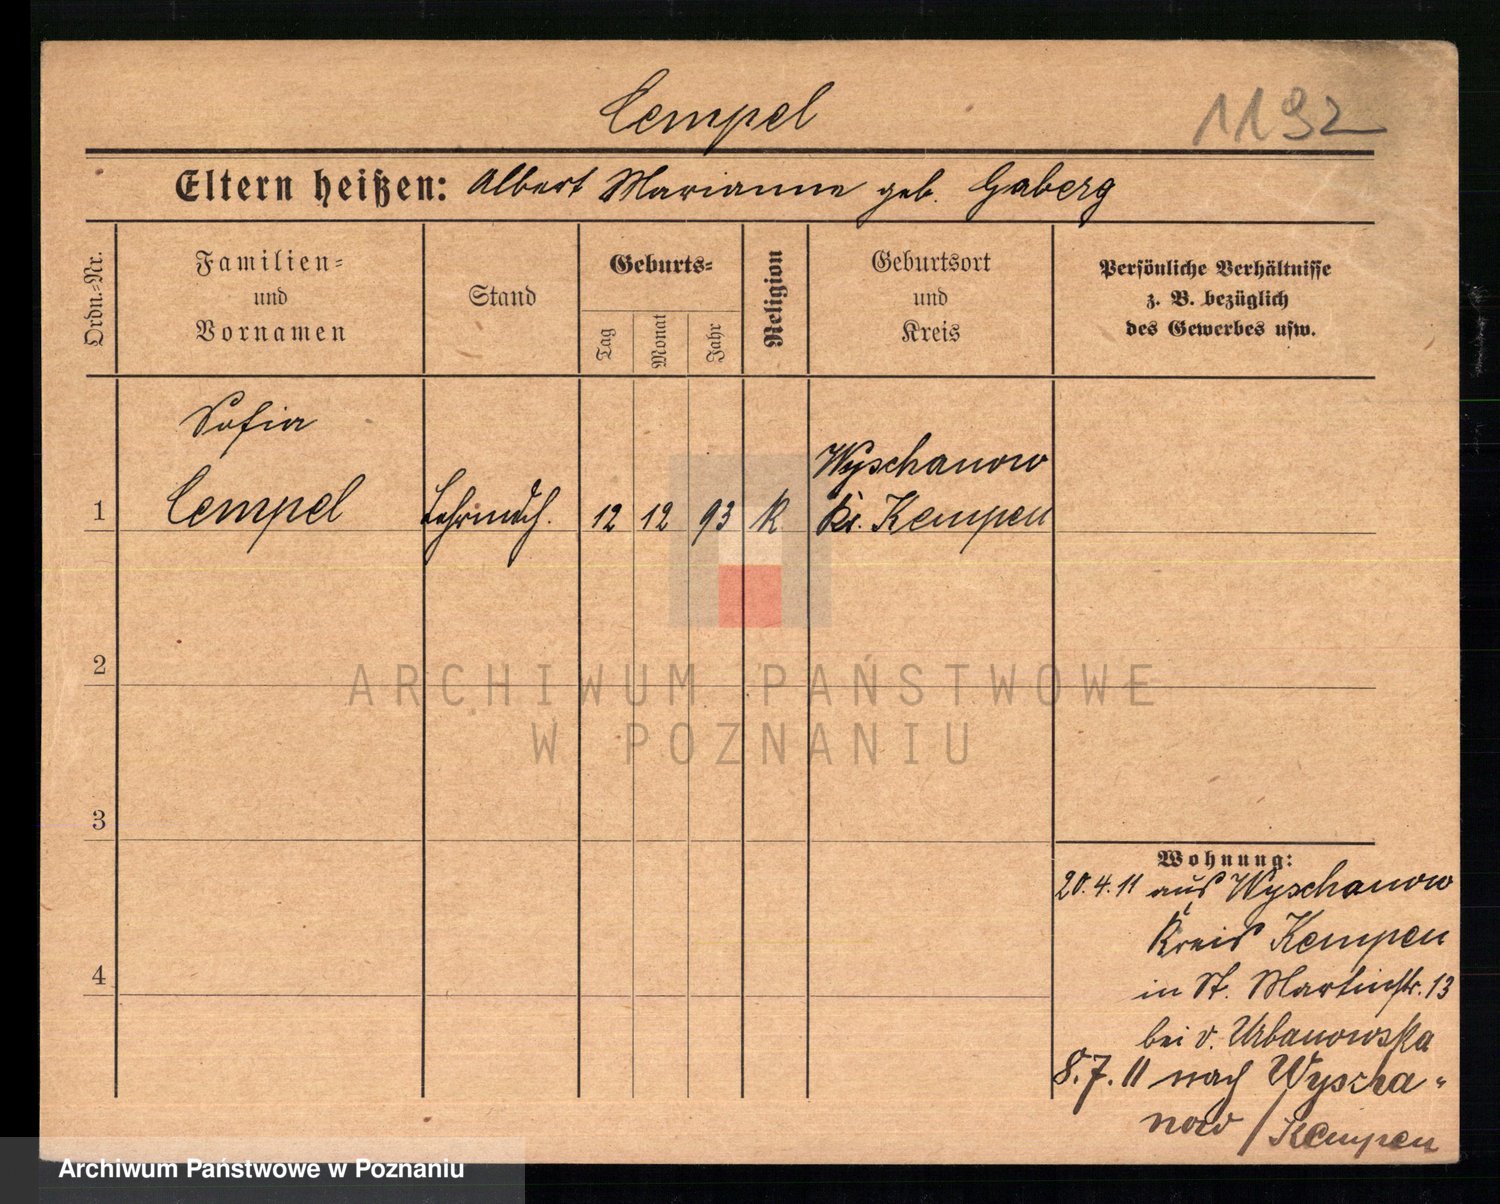 Cempel
1192
Eltern heißen: Albert Marianne geb. Gaberg
Ordn.=Nr.
Familien=
und
Vornamen
Stand
Geburts=
Tag
Monat
Jahr
Religion
Geburtsort
und
Kreis
Persönliche Verhältnisse
z. B. bezüglich
des Gewerbes usw.
Sofia
1 Cempel Lehrmdch. 12 12 93 K Wyschanow
Kr. Kempen
2
3
4
Wohnung:
20.4.11 aus Wyschanow
Kreis Kempen
in St. Martinstr. 13
bei v. Urbanowska
8.7.11 nach Wyscha-
now / Kempen
ARCHIWUM PAŃSTWOWE
W POZNANIU
Archiwum Państwowe w Poznaniu